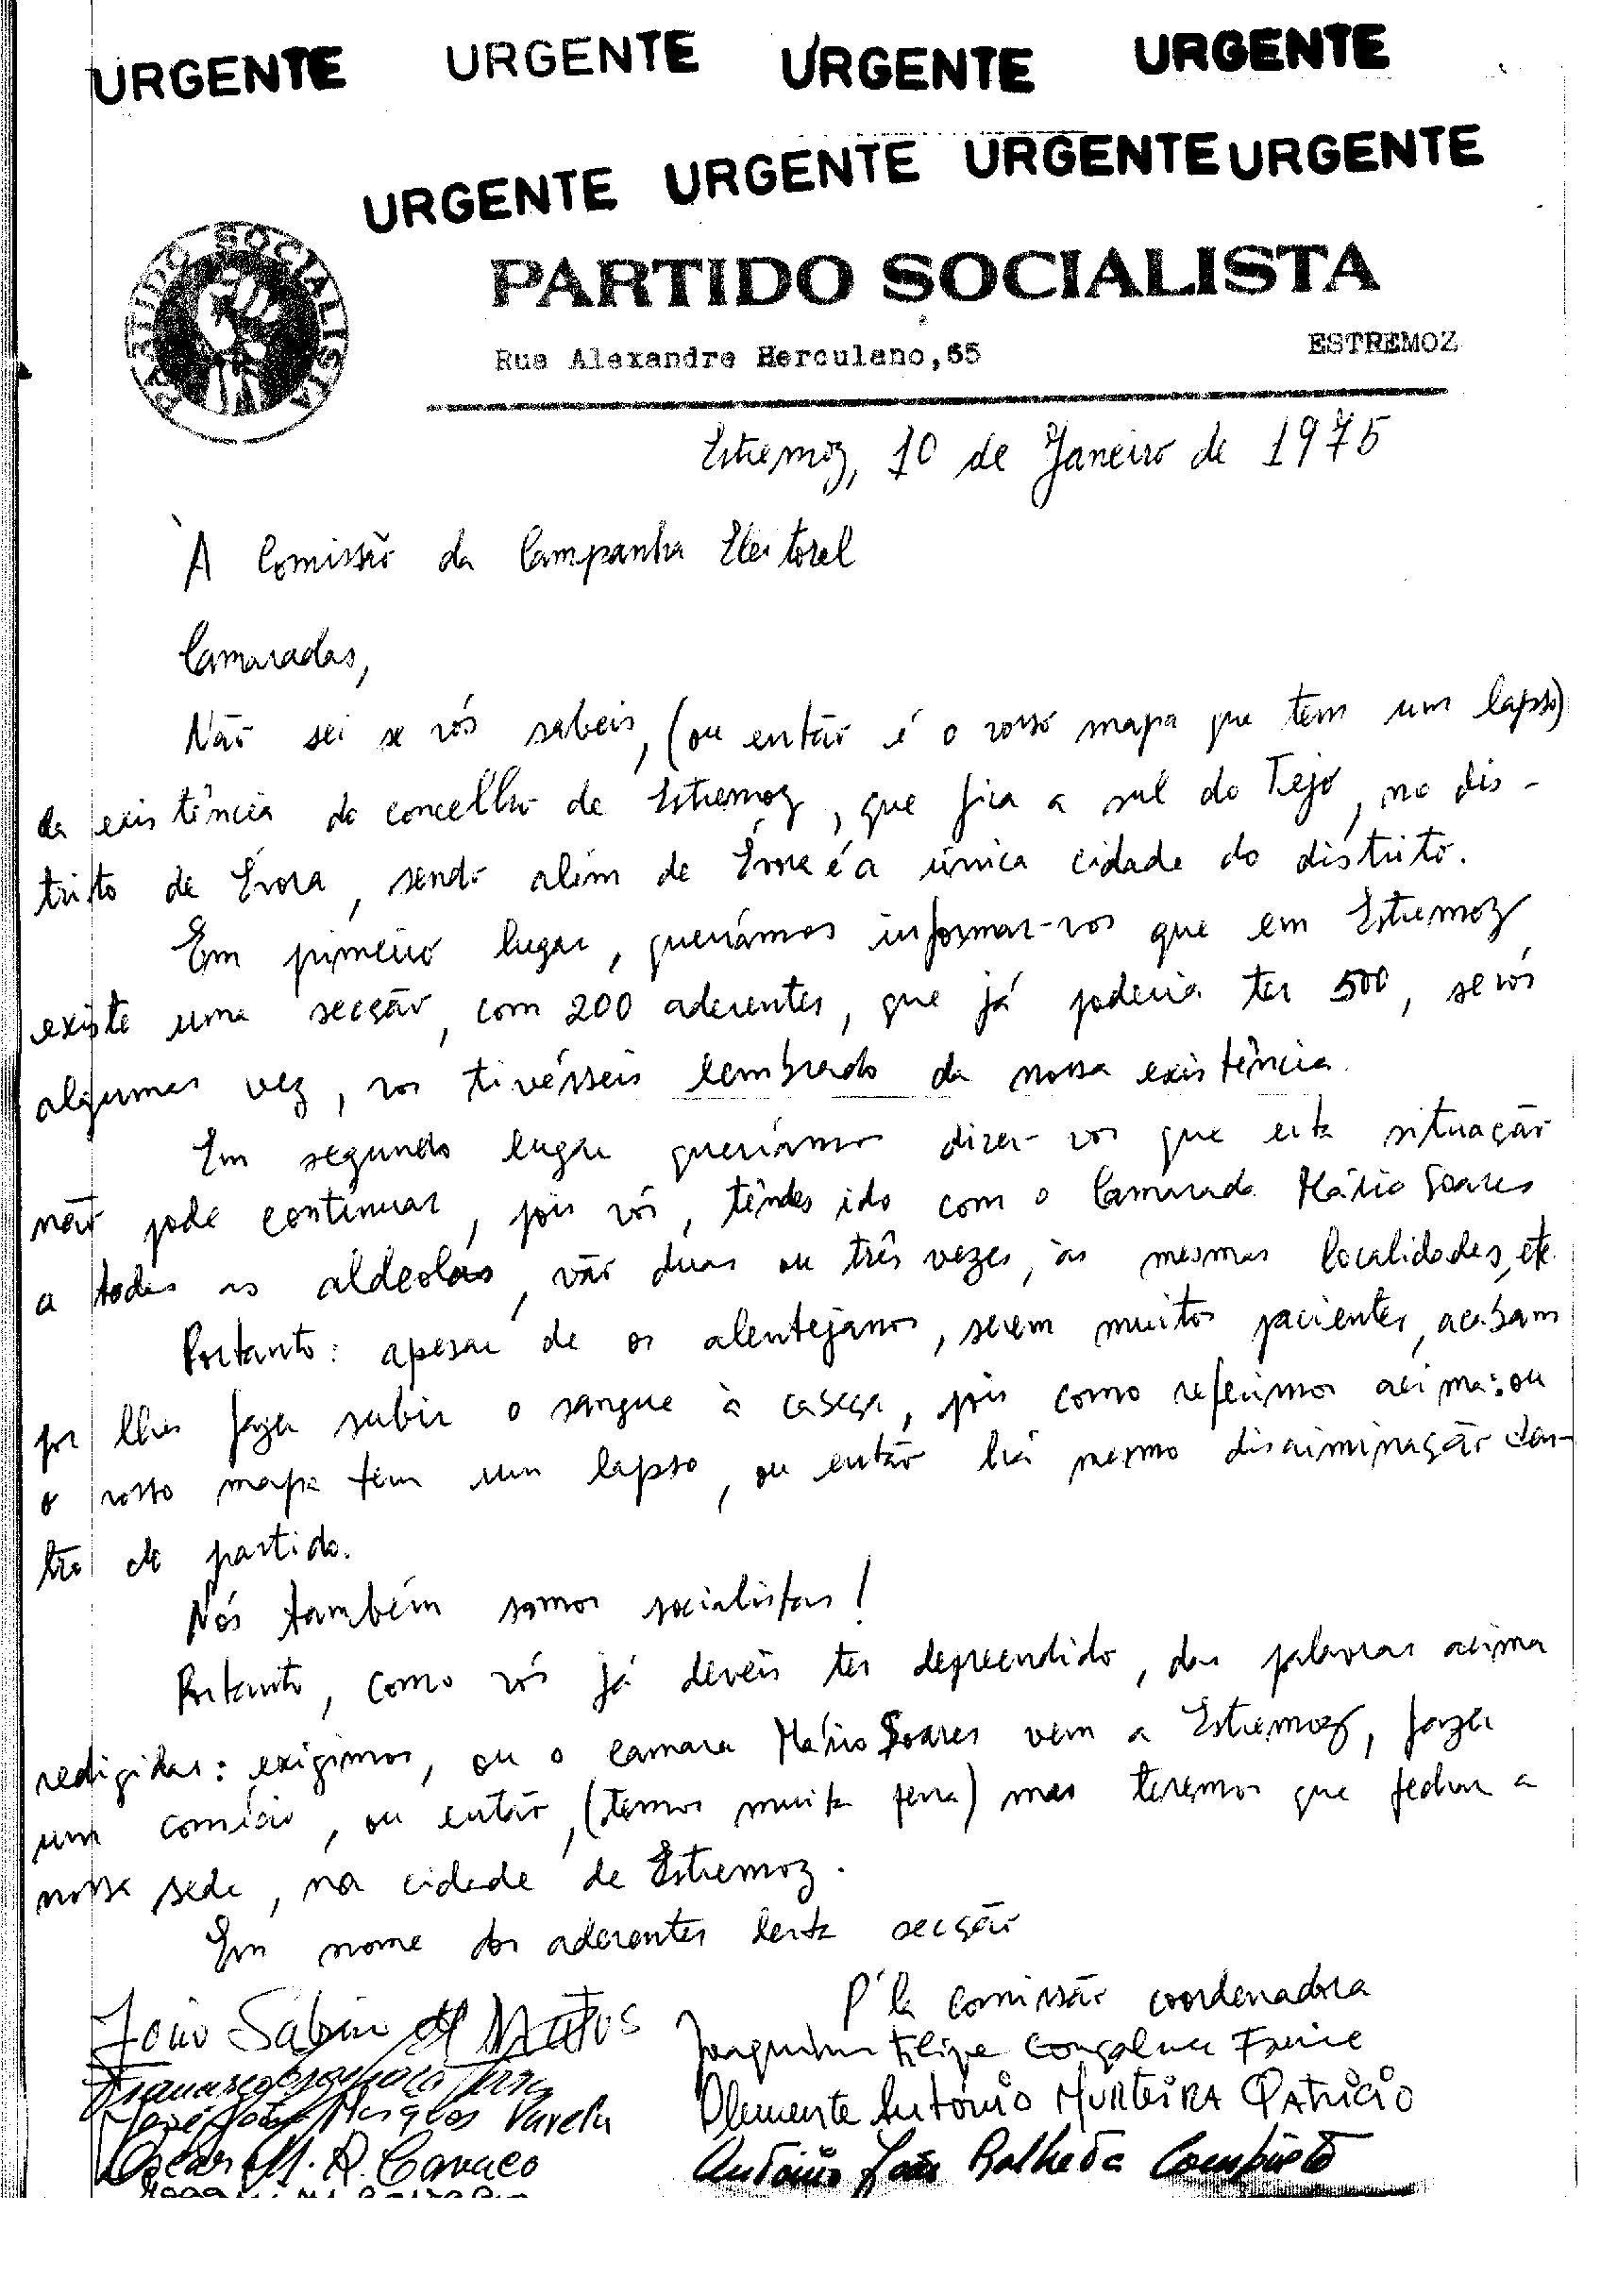 URGENTE URGENTE URGENTE URGENTE
URGENTE URGENTE URGENTE URGENTE
PARTIDO SOCIALISTA
PARTIDO SOCIALISTA
Rua Alexandre Herculano,65 ESTREMOZ
Estremoz, 10 de Janeiro de 1975
À Comissão da Campanha Eleitoral
Camaradas,
Não sei se vós sabeis, (ou então é o vosso mapa que tem um lapso)
da existência do concelho de Estremoz, que fica a sul do Tejo, no dis-
trito de Évora, sendo além de Évora é a única cidade do distrito.
Em primeiro lugar, queríamos informar-vos que em Estremoz,
existe uma secção, com 200 aderentes, que já poderia ter 500, se vós
algumas vez, vos tivésseis lembrado da nossa existência.
Em segundo lugar queríamos dizer-vos que esta situação
não pode continuar, pois vós, têndes ido com o Camarada Mário Soares
a todas as aldeolas, vão duas ou três vezes, às mesmas localidades, etc.
Portanto: apesar de os alentejanos, serem muitos pacientes, acabam
por lhes fazer subir o sangue à cabeça, pois como referimos acima: ou
o vosso mapa tem um lapso, ou então há mesmo discriminação den-
tro do partido.
Nós também somos socialistas!
Portanto, como vós já deveis ter depreendido, das palavras acima
redigidas: exigimos, ou o camara Mário Soares vem a Estremoz, fazer
um comício, ou então, (temos muita pena) mas teremos que fechar a
nossa sede, na cidade de Estremoz.
Em nome dos aderentes desta secção
P'la comissão coordenadora
João Sabino de Matos
Joaquim Filipe Gonçalves Freire
Clemente António MURTEIRA PATRICIO
José João Marques Varela
Oscar M. R. Cavaco
António João Ralheta